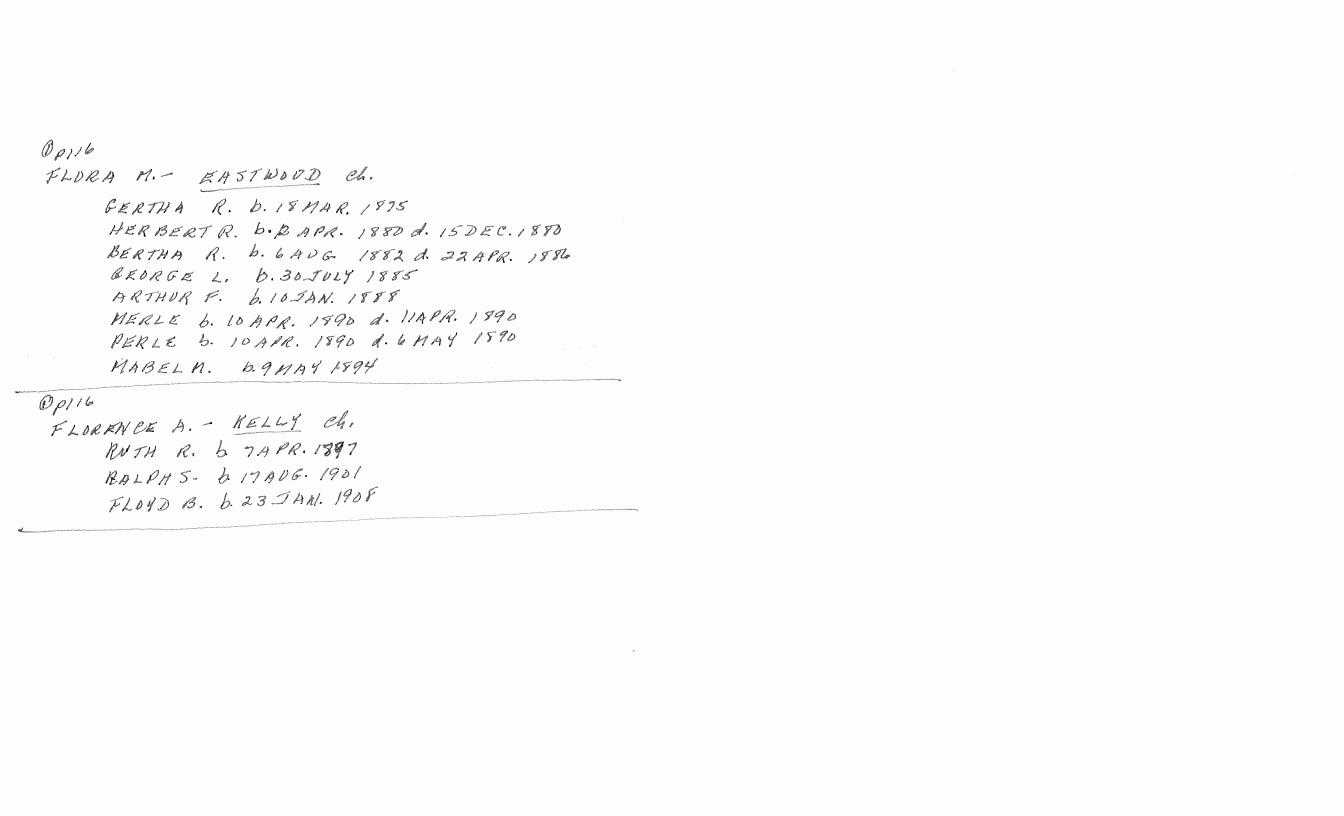 ① p116
FLORA M. - EASTWOOD ch.
GERTHA R. b. 18 MAR. 1875
HERBERT R. b. APR. 1880 d. 15 DEC. 1880
BERTHA R. b. 6 AUG. 1882 d. 22 APR. 1886
GEORGE L. b. 30 JULY 1885
ARTHUR F. b. 10 JAN. 1888
MERLE b. 10 APR. 1890 d. 11 APR. 1890
PERLE b. 10 APR. 1890 d. 6 MAY 1890
MABEL M. b. 9 MAY 1894
① p116
FLORENCE A. - KELLY ch.
RUTH R. b 7 APR. 1897
RALPH S. b 17 AUG. 1901
FLOYD B. b. 23 JAN. 1908